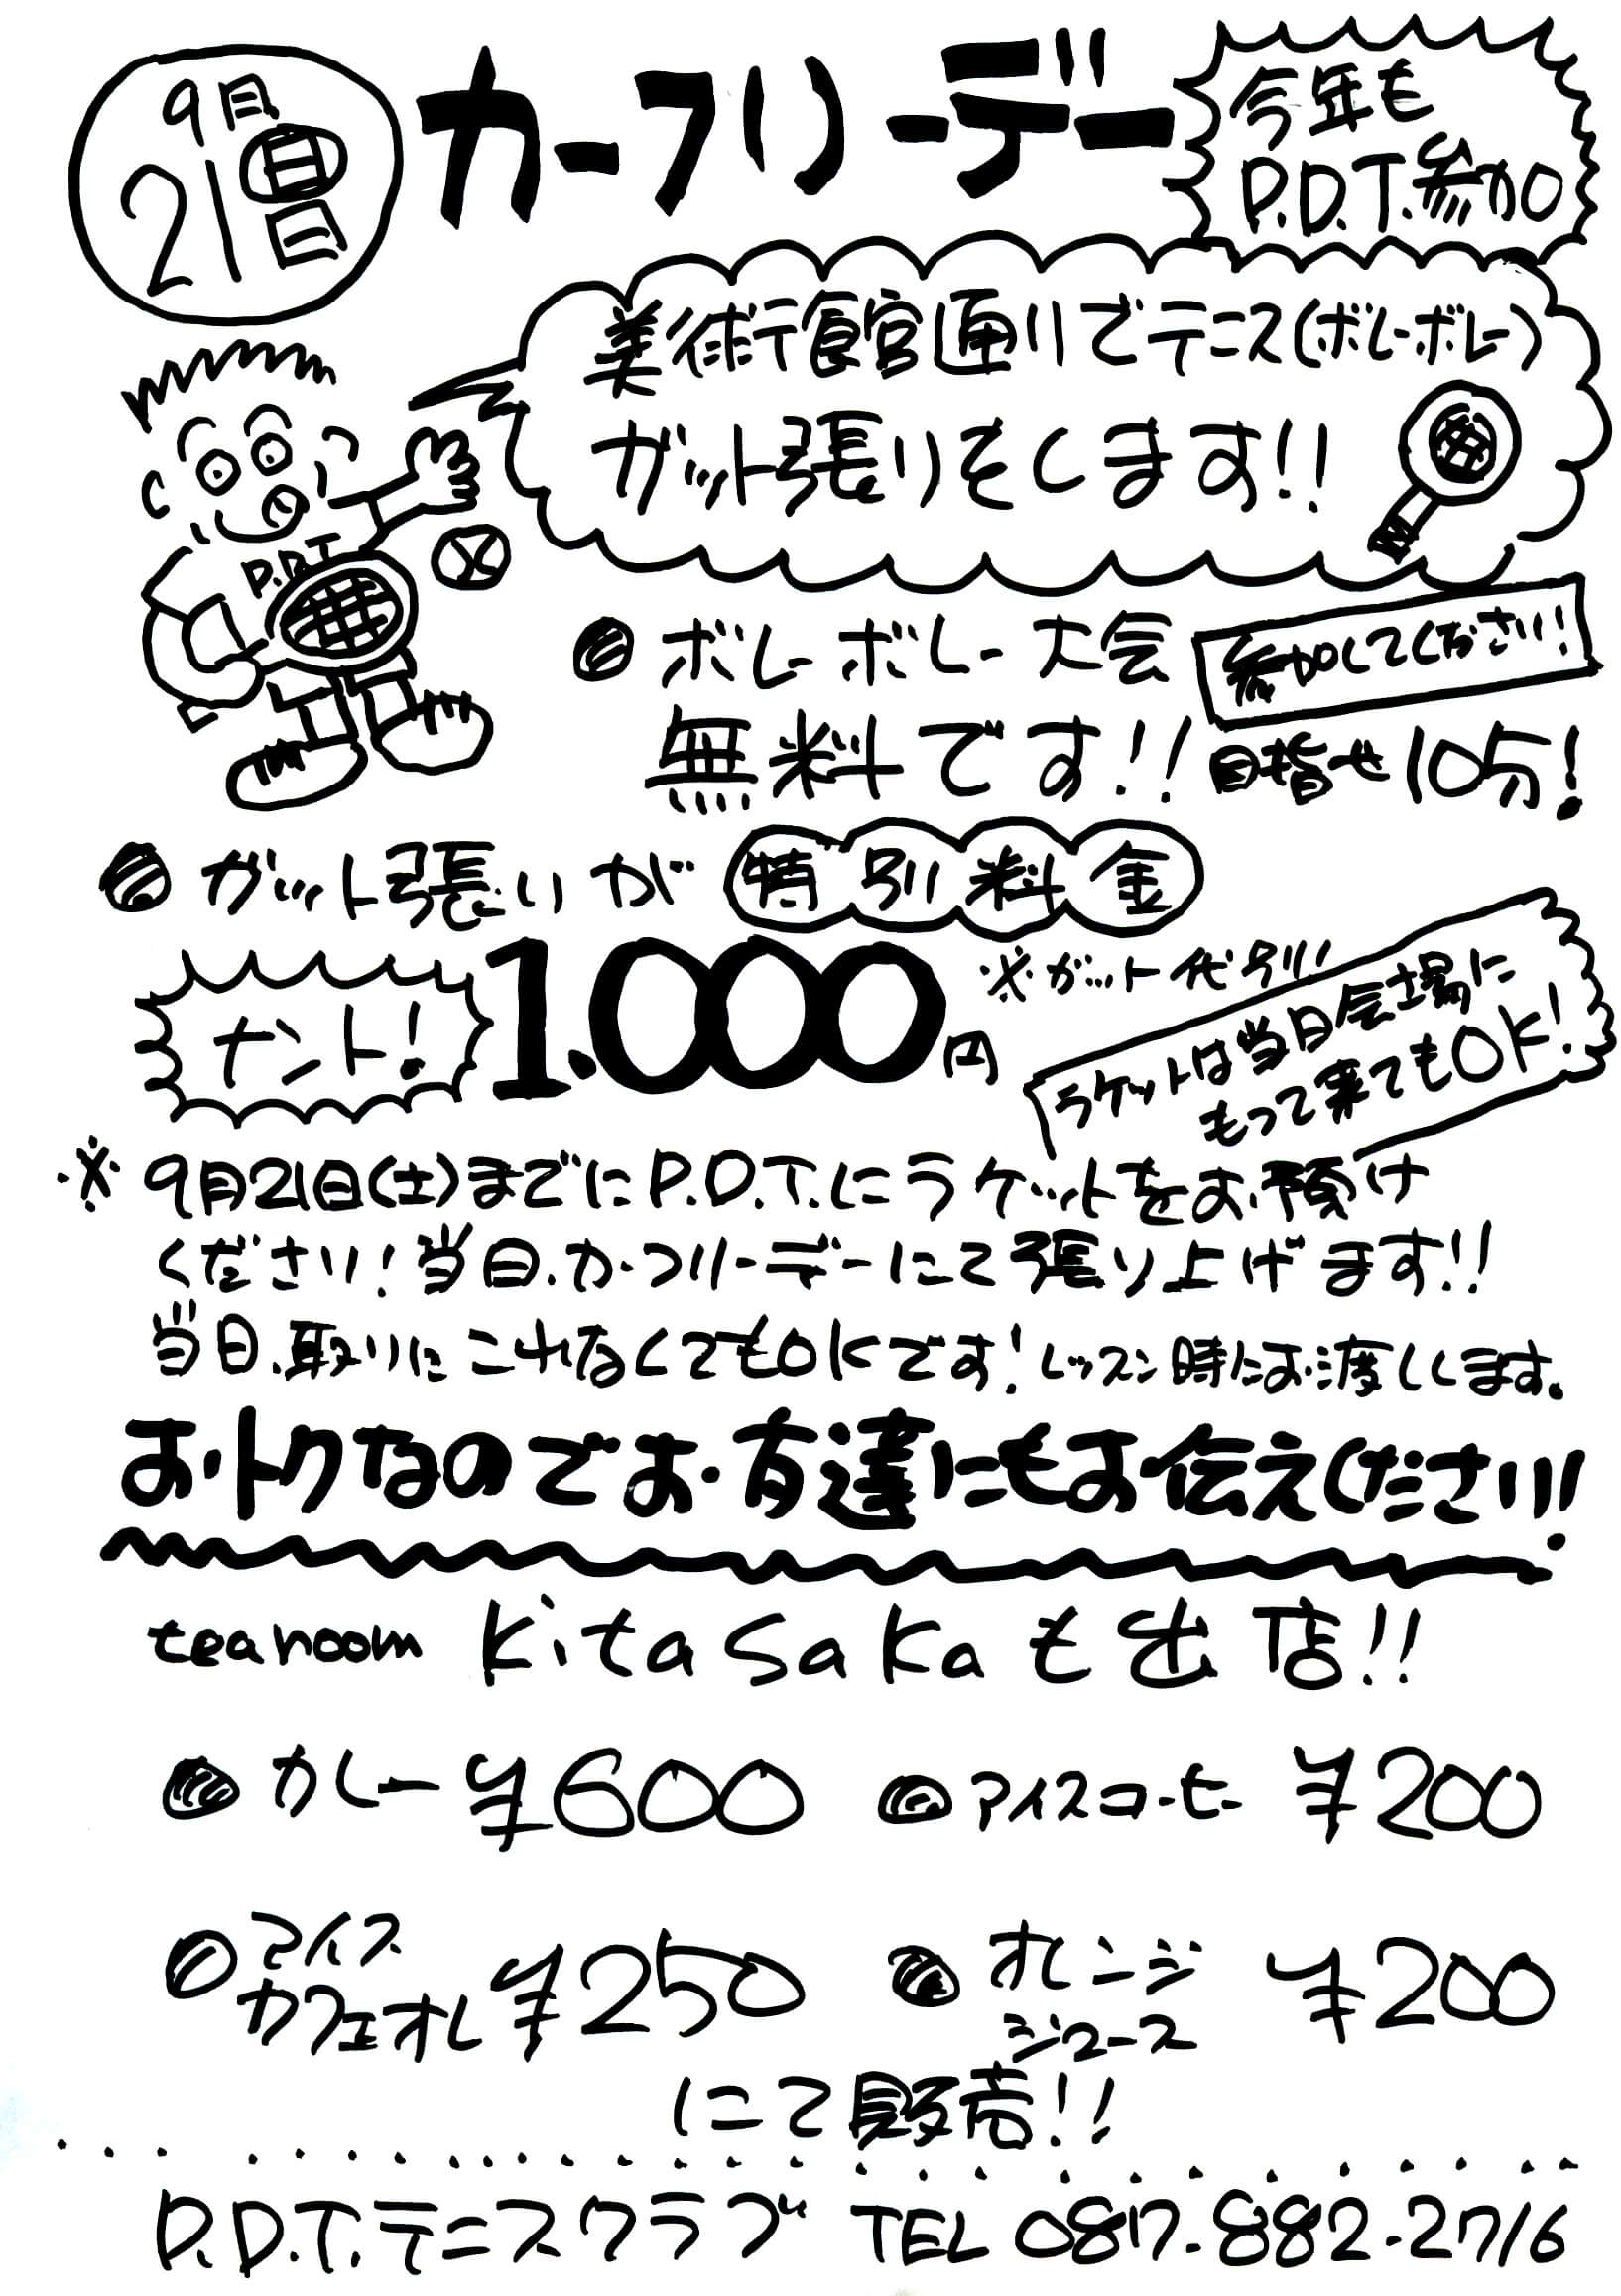 9月
21日
日曜
カーフリーデー
今年も
P.D.T.参加
美術館通りでテニス(ボレーボレー)
ガット張りをします!!
P.D.T
ボレーボレー大会
参加してください!
無料です!!
目指せ10分!
ガット張りが特別料金
ナント!
1.000円
※ガット代別!!
ラケットは当日会場に
もって来てもOK!
※9月21日(土)までにP.D.T.にラケットをお預け
ください!当日.カーフリーデーにて張り上げます!!
当日.取りにこれなくてもOKです!レッスン時にお渡しします。
おトクなのでお友達にもお伝えください!
tearoom Kitasakaも出店!!
カレー ¥600
アイスコーヒー ¥200
アイス
カフェオレ ¥250
オレンジ
ジュース ¥200
にて販売!!
P.D.T.テニスクラブ TEL 087-882-2716